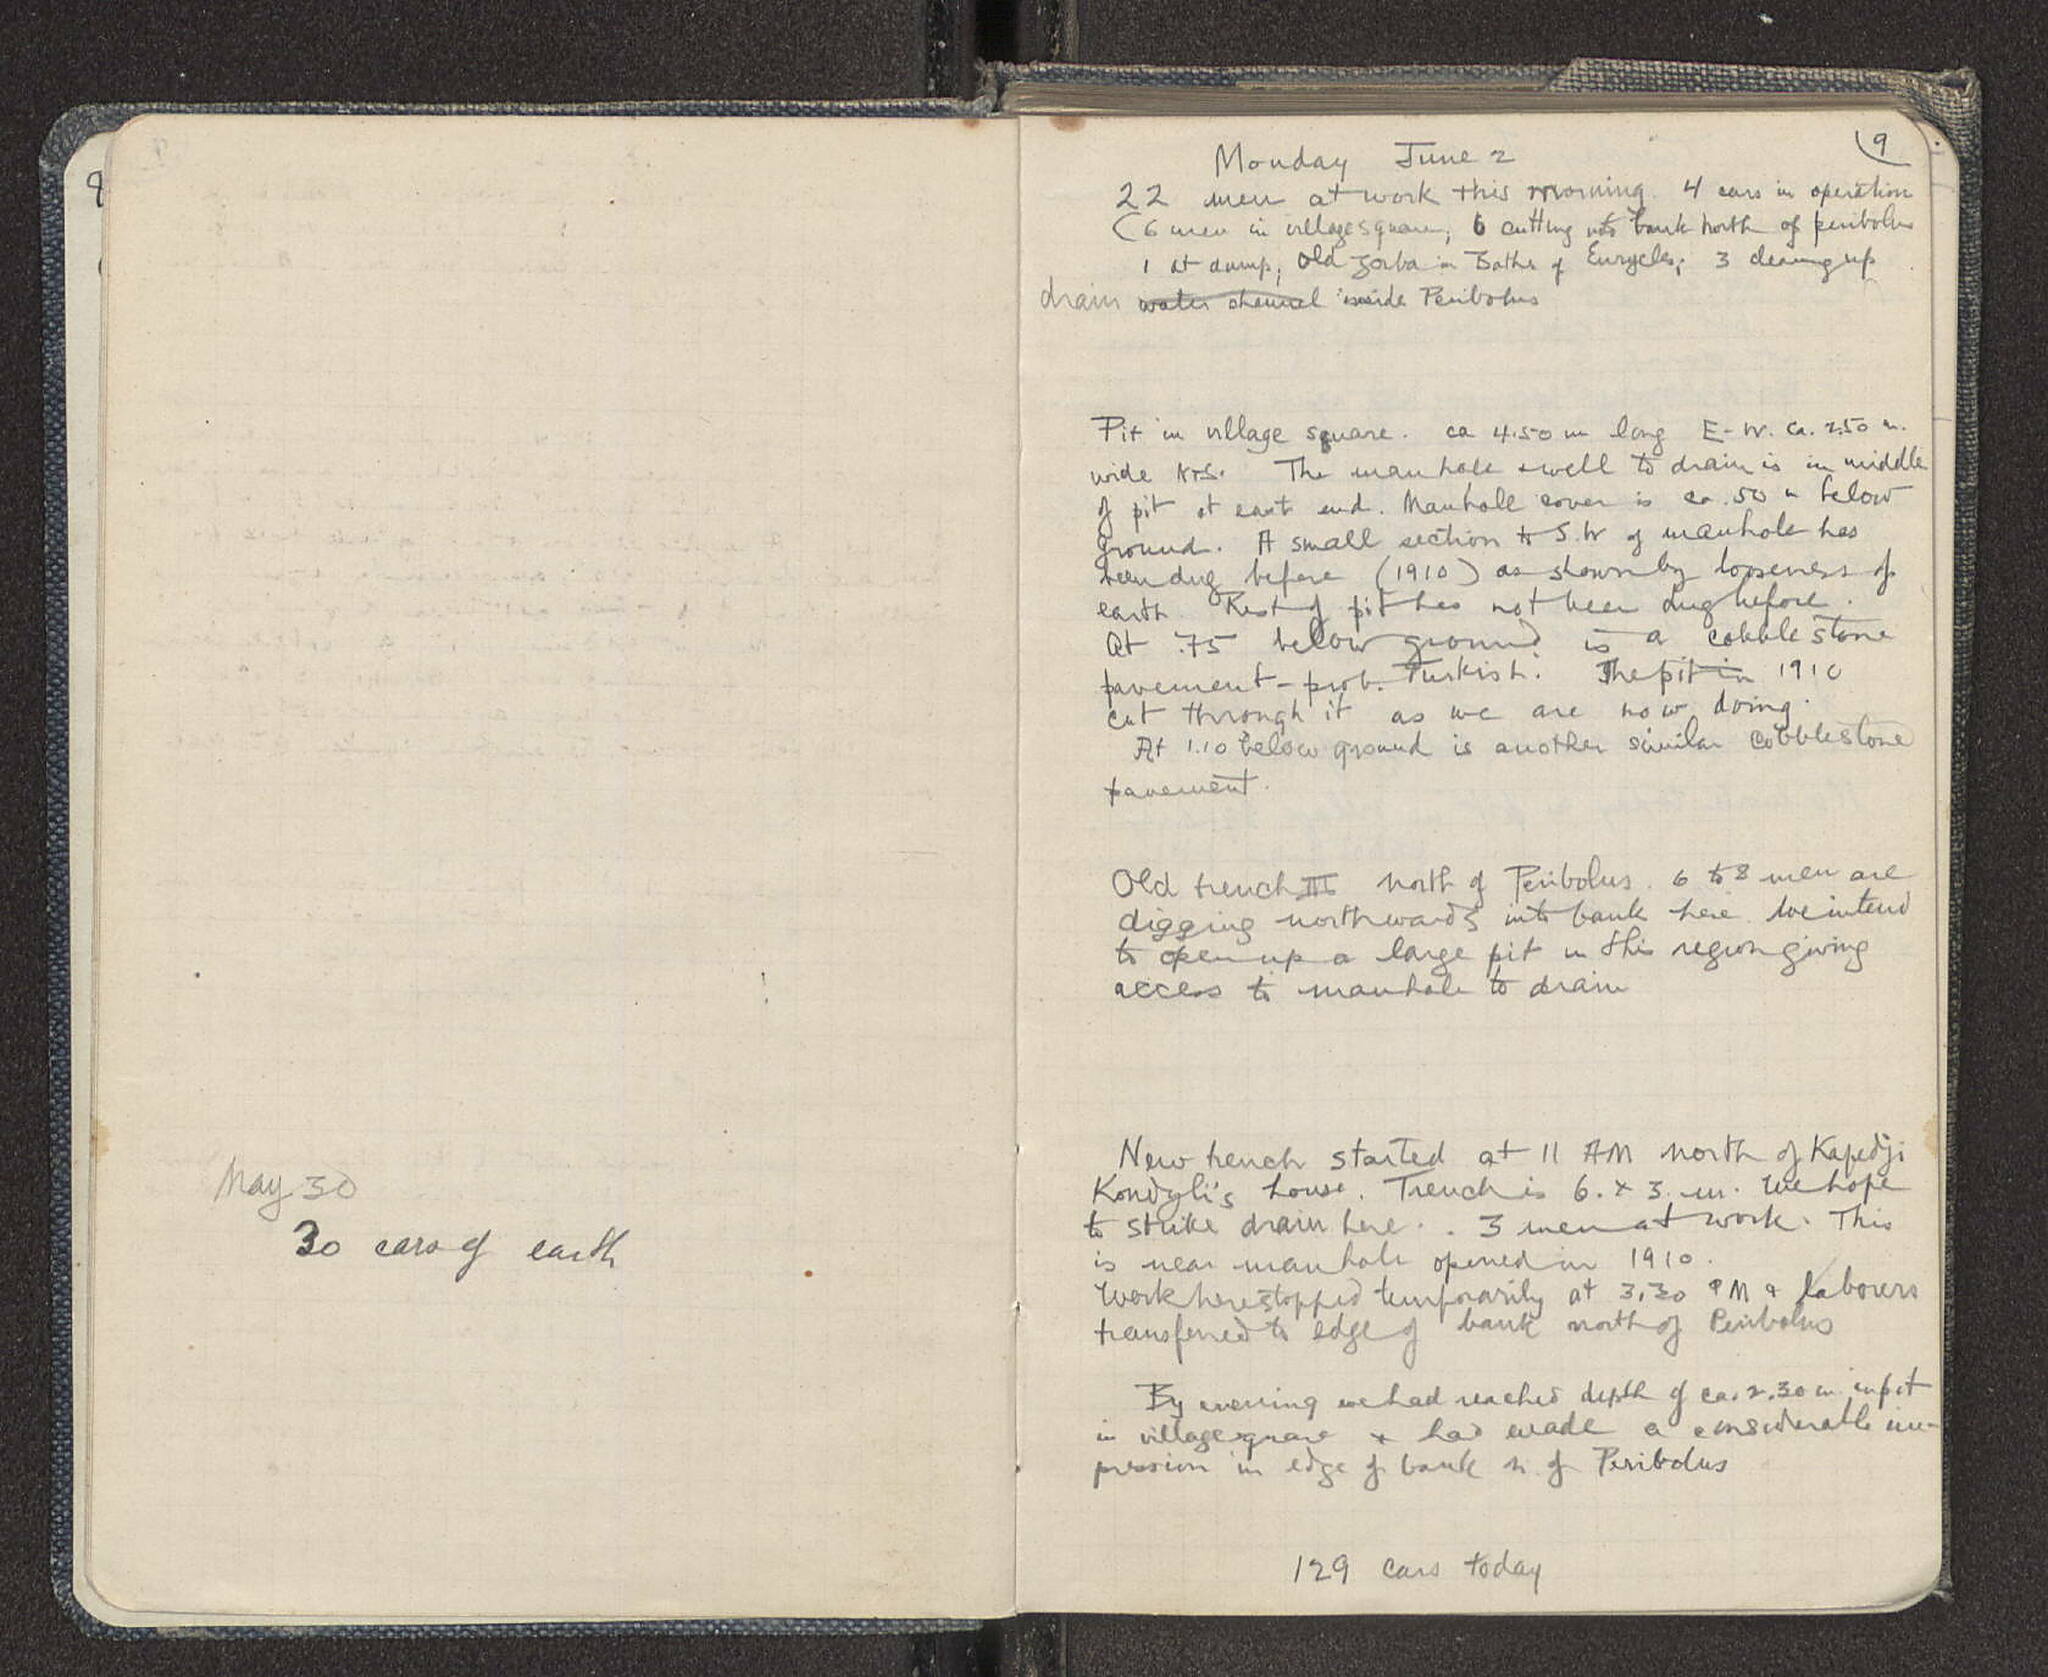 8
May 30
30 cars of earth
9
Monday June 2
22 men at work this morning. 4 cars in operation
(6 men in village square; 6 cutting into bank North of peribolus
1 at dump; Old Zorba in Baths of Eurycles; 3 cleaning up
drain water channel inside Peribolus
Pit in village square. ca 4.50 m long E-W. ca. 2.50 m.
wide N+S. The manhole + well to drain is in middle
of pit at east end. Manhole cover is ca .50 m below
ground. A small section to S.W of manhole has
been dug before (1910) as shown by looseness of
earth. Rest of pit has not been dug before.
At .75 below ground is a cobble stone
pavement - prob. Turkish. The pit in 1910
cut through it as we are now doing.
At 1.10 below ground is another similar cobblestone
pavement.
Old trench III north of Peribolus. 6 to 8 men are
digging northwards into bank here. We intend
to open up a large pit in this region giving
access to manhole to drain
New trench started at 11 AM north of Kapedji
Kondyli's house. Trench is 6. x 3. m. We hope
to strike drain here. . 3 men at work. This
is near manhole opened in 1910.
Work here stopped temporarily at 3.30 PM + laborers
transferred to edge of bank north of Peribolus
By evening we had reached depth of ca. 2.30 m in pit
in village square + had made a considerable im-
pression in edge of bank n. of Peribolus
129 cars today